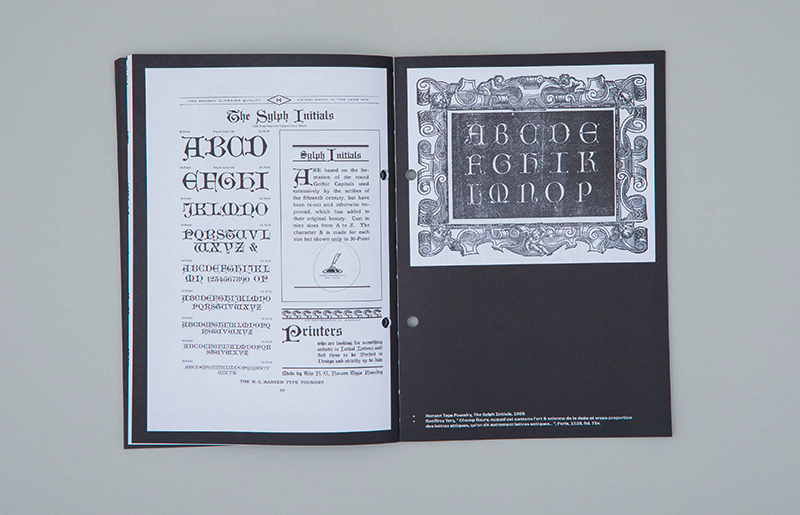 THE HANSEN SUPERIOR QUALITY
H
ESTABLISHED IN THE YEAR 1872
The Sylph Initials
ABCD
EFGHI
JKLMNO
PQRSTUV
WXYZ &
ABCDEFGHIJKL
MN 1234567890 OP
ABCDEFGHIJKLMNO
PQRSTUVWXYZ
ABCDEFGHIJKLMNOPQ
RSTUVWXYZ
ABCDEFGHIJKLMNOPQR
STUVWXYZ
Sylph Initials
ARE based on the for-
mation of the round
Gothic Capitals used
extensively by the scribes of
the fifteenth century, but have
been re-cut and otherwise im-
proved, which has added to
their original beauty. Cast in
nine sizes from A to Z. The
character & is made for each
size but shown only in 36-Point
Printers
who are looking for something
artistic in Initial Letters will
find these to be Perfect in
Design and strictly up to date
Made by The H. C. Hansen Type Foundry
THE H. C. HANSEN TYPE FOUNDRY
ABCDE
FGHIKL
LMNOP
Hansen Type Foundry, The Sylph Initials, 1909.
Geoffroy Tory, "Champ fleury, auquel est contenu l'art & science de la deue et vraye proportion
des lettres attiques, qu'on dit autrement lettres antiques...", Paris, 1529, fol. 75v.